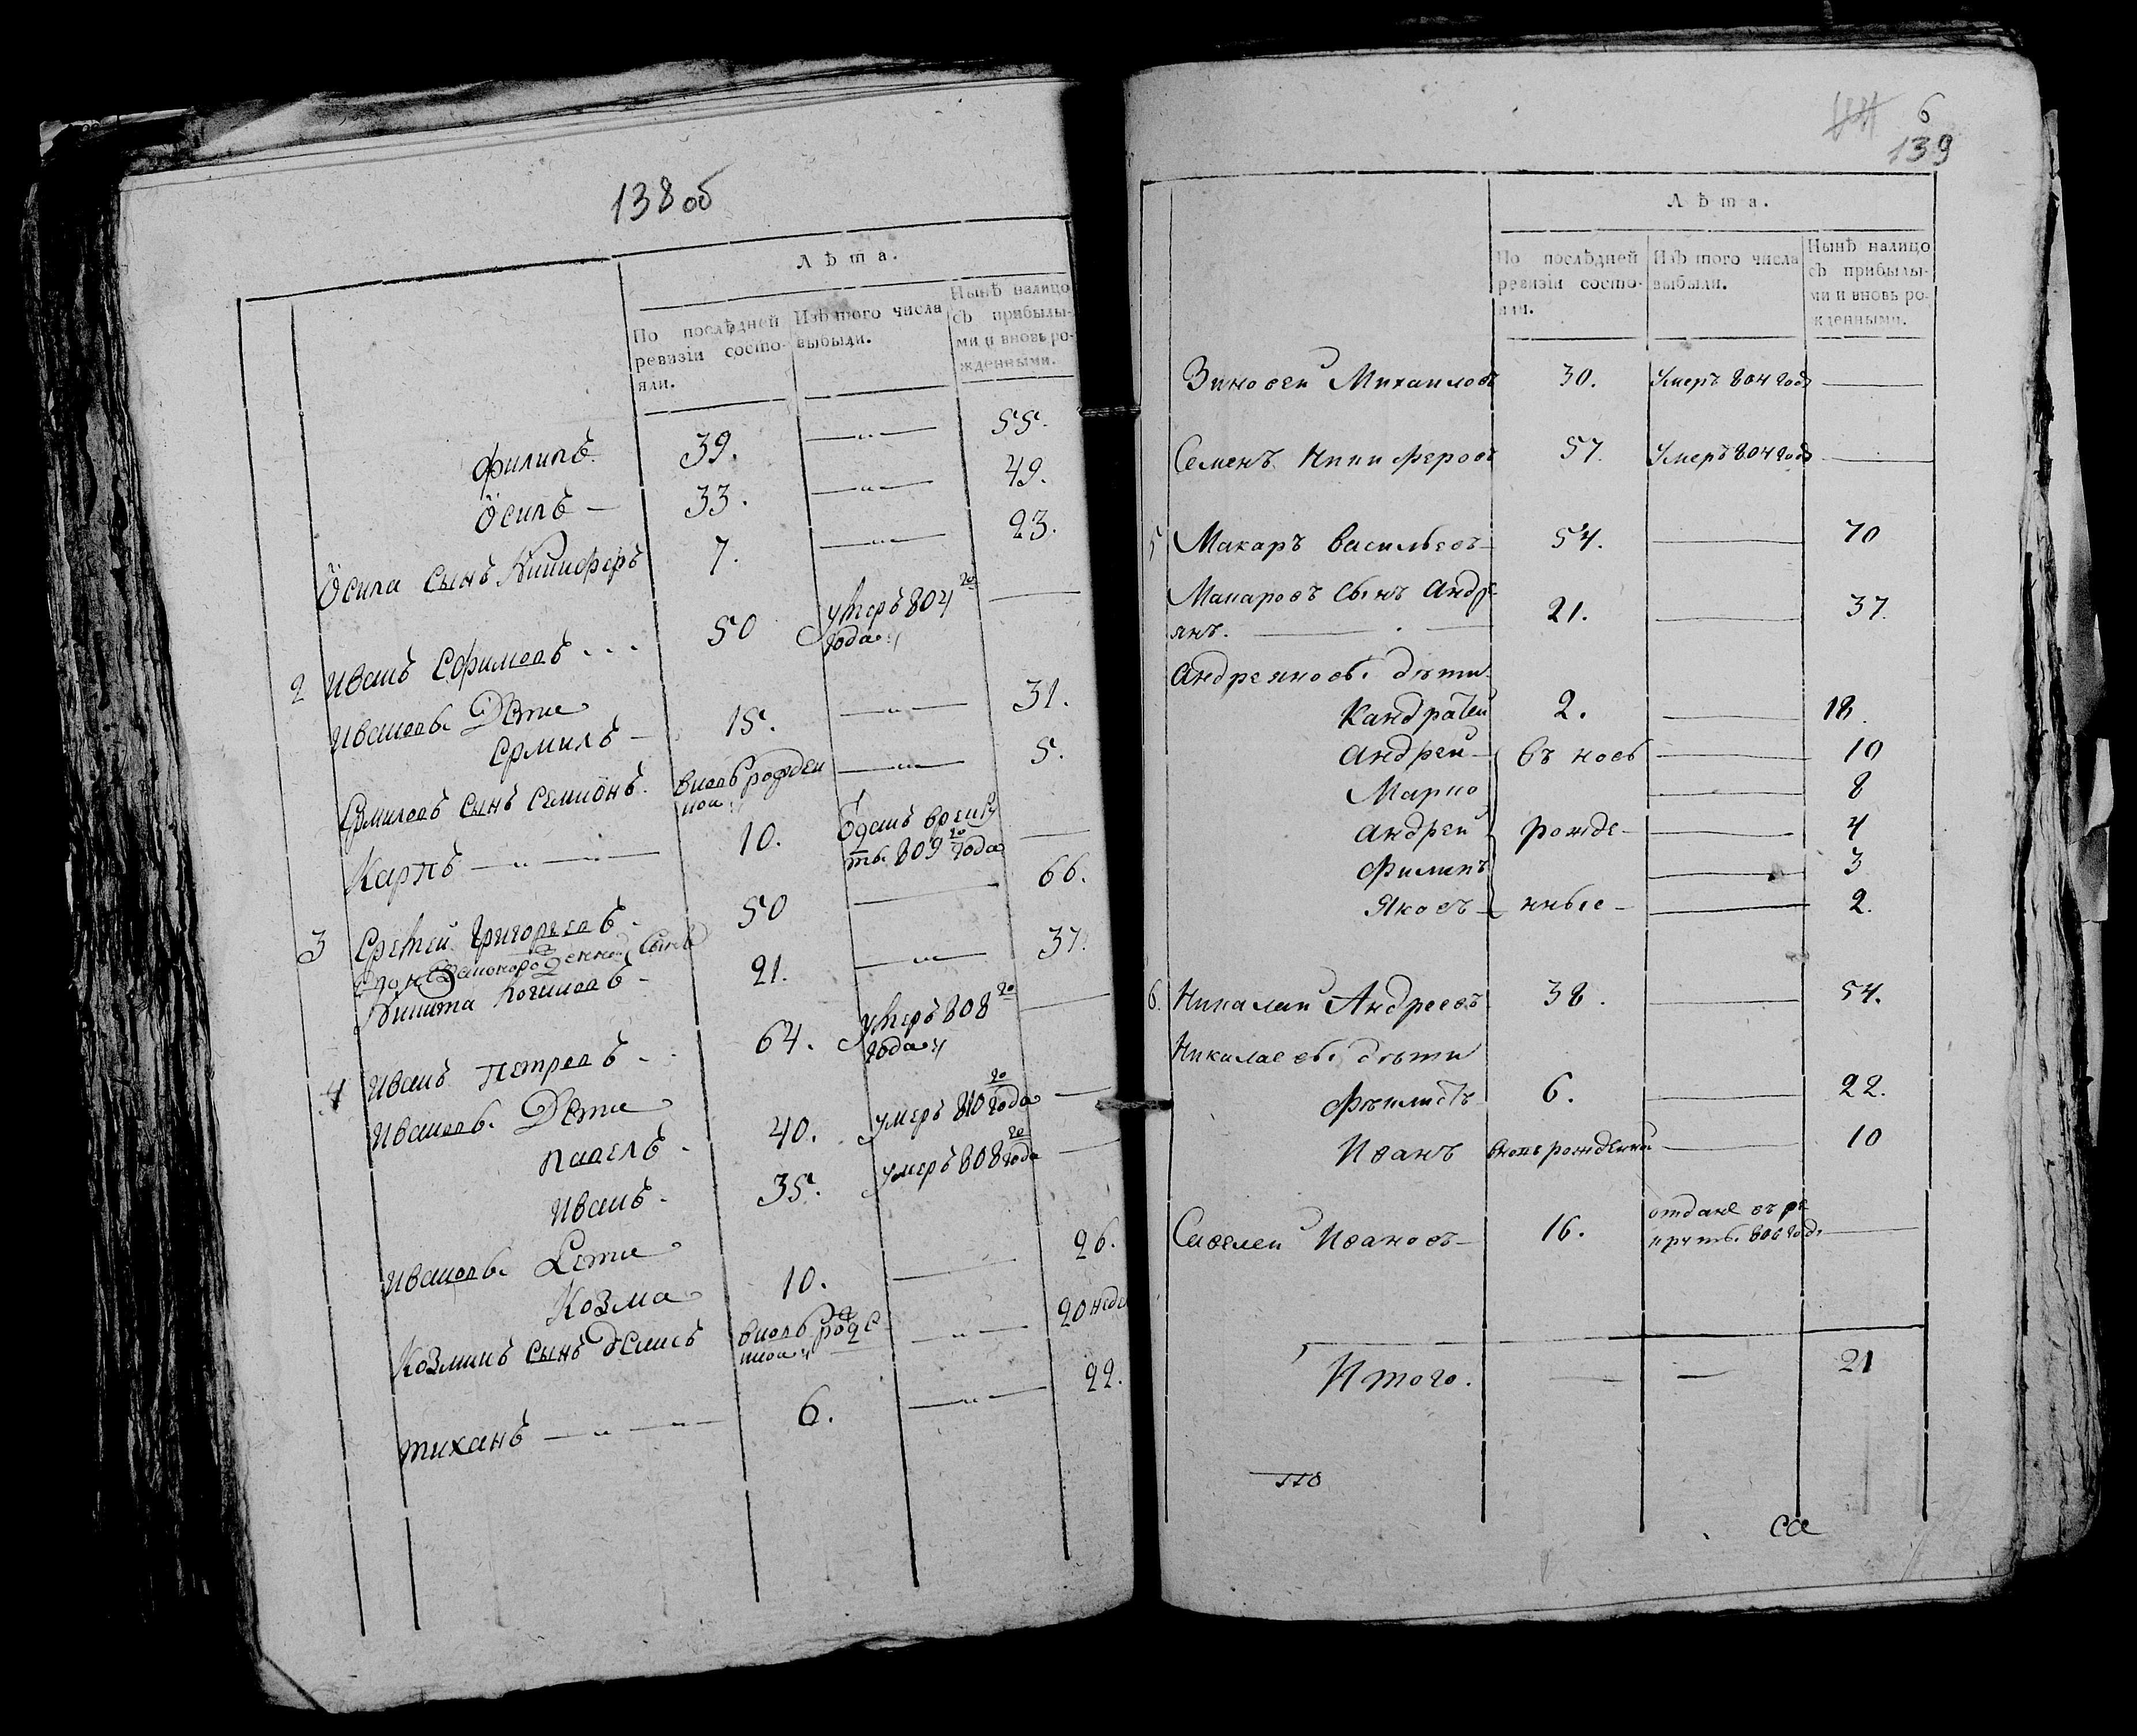 138 об
Лѣта.
По послѣдней ревизіи состояли.
Изъ того числа выбыли.
Нынѣ налицо съ прибылыми и вновь рожденными.
Филипъ 39. —„— 55.
Осипъ — 33. —„— 49.
Осипа сынъ Никиферъ 7. —„— 23.
2 Иванъ Ефимовъ 50 умеръ 804го года —
Ивановы Дети
Ермилъ — 15. —„— 31.
Ермиловъ сынъ Семионъ. вновь рожденной —„— 5.
Карпъ —„—„— 10. Одашъ врекруты 809го года —
3 Еремей Григорьевъ 50 — 66.
Сынъ
Никита 21. —„— 37.
4 Иванъ Петровъ 64. умеръ 808го года —
Ивановы Дети
Павелъ 40. умеръ 810го года —
Иванъ 35. умеръ 808го года —
Ивановы Дети
Козма 10. — 26.
Козминъ сынъ Демисъ вновь рожденной —„— 20 неде
Тиханъ —„—„— 6. —„— 22.
6
139
Лѣта.
По послѣдней ревизіи состояли.
Изъ того числа выбыли.
Нынѣ налицо съ прибылыми и вновь рожденными.
Зиновеи Михаиловъ 30. Умеръ 804 года —
Семенъ Никиферовъ 57. Умеръ 804 года —
5 Макаръ Васильевъ 54. — 70
Макаровъ Сынъ Андре
янъ. 21. — 37.
Андреяновы дѣти.
Кандратей 2. — 18.
Андрей въ новь — 10
Марко — 8
Андрей рожде — 4
Филипъ — 3
Яковъ нные — 2.
6. Никалаи Андреевъ 38. — 54.
Николаевы дѣти
Фѣилистъ 6. — 22.
Иванъ вновь рожденной — 10
Савелеи Ивановъ 16. отданъ въ ре
круты. 806 года —
Итого. — — 21
110
са